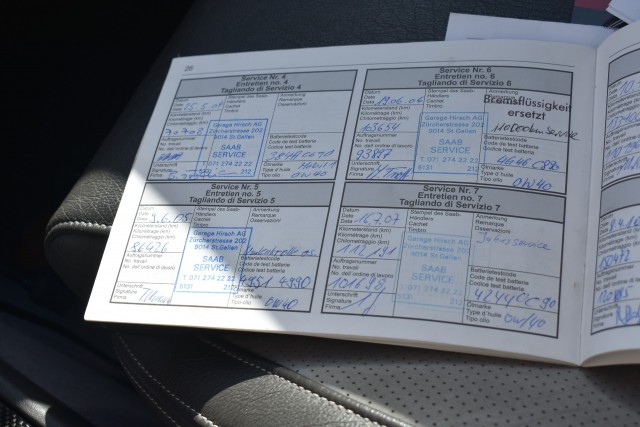 26
Service Nr. 4
Entretien no. 4
Tagliando di Servizio 4
Datum
Date
Data 15.5.04
Kilometerstand (km)
Kilométrage (km)
Chilometraggio (km)
70708
Auftragsnummer
No. travail
No. dell'ordine di lavoro
Unterschrift
Signature
Firma
Stempel des Saab-
Händlers
Cachet
Timbro
Garage Hirsch AG
Zürcherstrasse 202
9014 St.Gallen
SAAB
SERVICE
T 071 274 22 22
Anmerkung
Remarque
Osservazioni
Batterietestcode
Code de test batterie
Codice test batteria
Ölmarke
Type d'huile
Tipo olio 0W/40
Mobil 1
Service Nr. 5
Entretien no. 5
Tagliando di Servizio 5
Datum
Date
Data 3.6.05
Kilometerstand (km)
Kilométrage (km)
Chilometraggio (km)
86426
Auftragsnummer
No. travail
No. dell'ordine di lavoro
Unterschrift
Signature
Firma
Stempel des Saab-
Händlers
Cachet
Timbro
Garage Hirsch AG
Zürcherstrasse 202
9014 St.Gallen
SAAB
SERVICE
T 071 274 22 22
5131 212
Anmerkung
Remarque
Osservazioni
Batterietestcode
Code de test batterie
Codice test batteria
4951 4990
Ölmarke
Type d'huile
Tipo olio 0W/40
Service Nr. 6
Entretien no. 6
Tagliando di Servizio 6
Datum
Date
Data 19.06.06
Kilometerstand (km)
Kilométrage (km)
Chilometraggio (km)
Auftragsnummer
No. travail
No. dell'ordine di lavoro
Unterschrift
Signature
Firma
Stempel des Saab-
Händlers
Cachet
Timbro
Garage Hirsch AG
Zürcherstrasse 202
9014 St.Gallen
SAAB
SERVICE
T 071 274 22 22
5131 212
Anmerkung
Remarque
Osservazioni
Bremsflüssigkeit
ersetzt
Batterietestcode
Code de test batterie
Codice test batteria
Ölmarke
Type d'huile
Tipo olio 0W40
Service Nr. 7
Entretien no. 7
Tagliando di Servizio 7
Datum
Date
Data 16.7.07
Kilometerstand (km)
Kilométrage (km)
Chilometraggio (km)
117 191
Auftragsnummer
No. travail
No. dell'ordine di lavoro
101698
Unterschrift
Signature
Firma
Stempel des Saab-
Händlers
Cachet
Timbro
Garage Hirsch AG
Zürcherstrasse 202
9014 St.Gallen
SAAB
SERVICE
T 071 274 22 22
5131 212
Anmerkung
Remarque
Osservazioni
Jahresservice
Batterietestcode
Code de test batterie
Codice test batteria
Ölmarke
Type d'huile
Tipo olio 0W/40